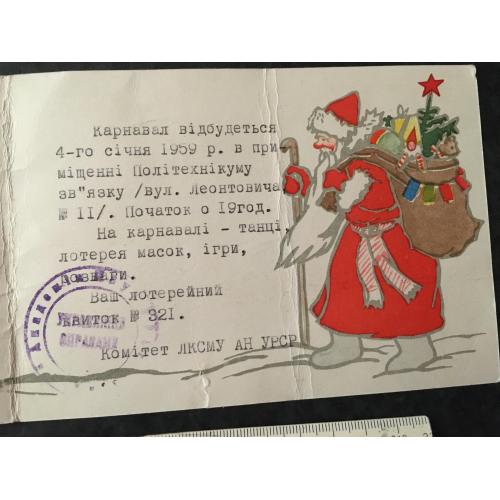 Карнавал відбудеться
4-го січня 1959 р. в при
міщенні Політехнікуму
зв"язку /вул. Леонтовича
№ II/. Початок о 19год.
На карнавалі - танці,
лотерея масок, ігри,
розваги.
Ваш лотерейний
квиток № 32I.
Комітет ЛКСМУ АН УРСР